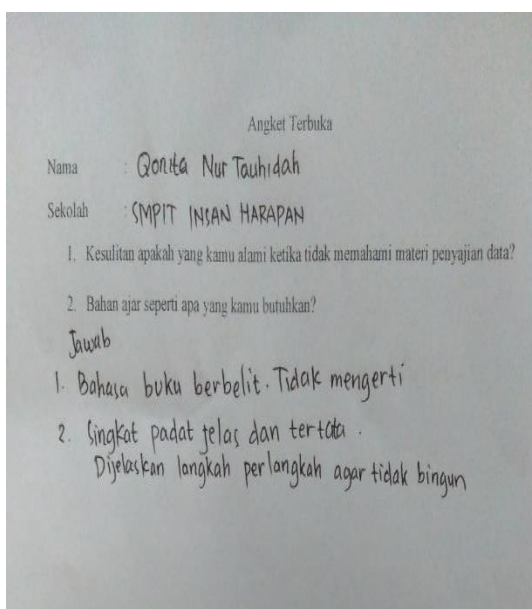 Angket Terbuka
Nama : Qonita Nur Tauhidah
Sekolah : SMPIT INSAN HARAPAN
1. Kesulitan apakah yang kamu alami ketika tidak memahami materi penyajian data?
2. Bahan ajar seperti apa yang kamu butuhkan?
Jawab
1. Bahasa buku berbelit. Tidak mengerti
2. Singkat padat jelas dan tertata.
Dijelaskan langkah perlangkah agar tidak bingun